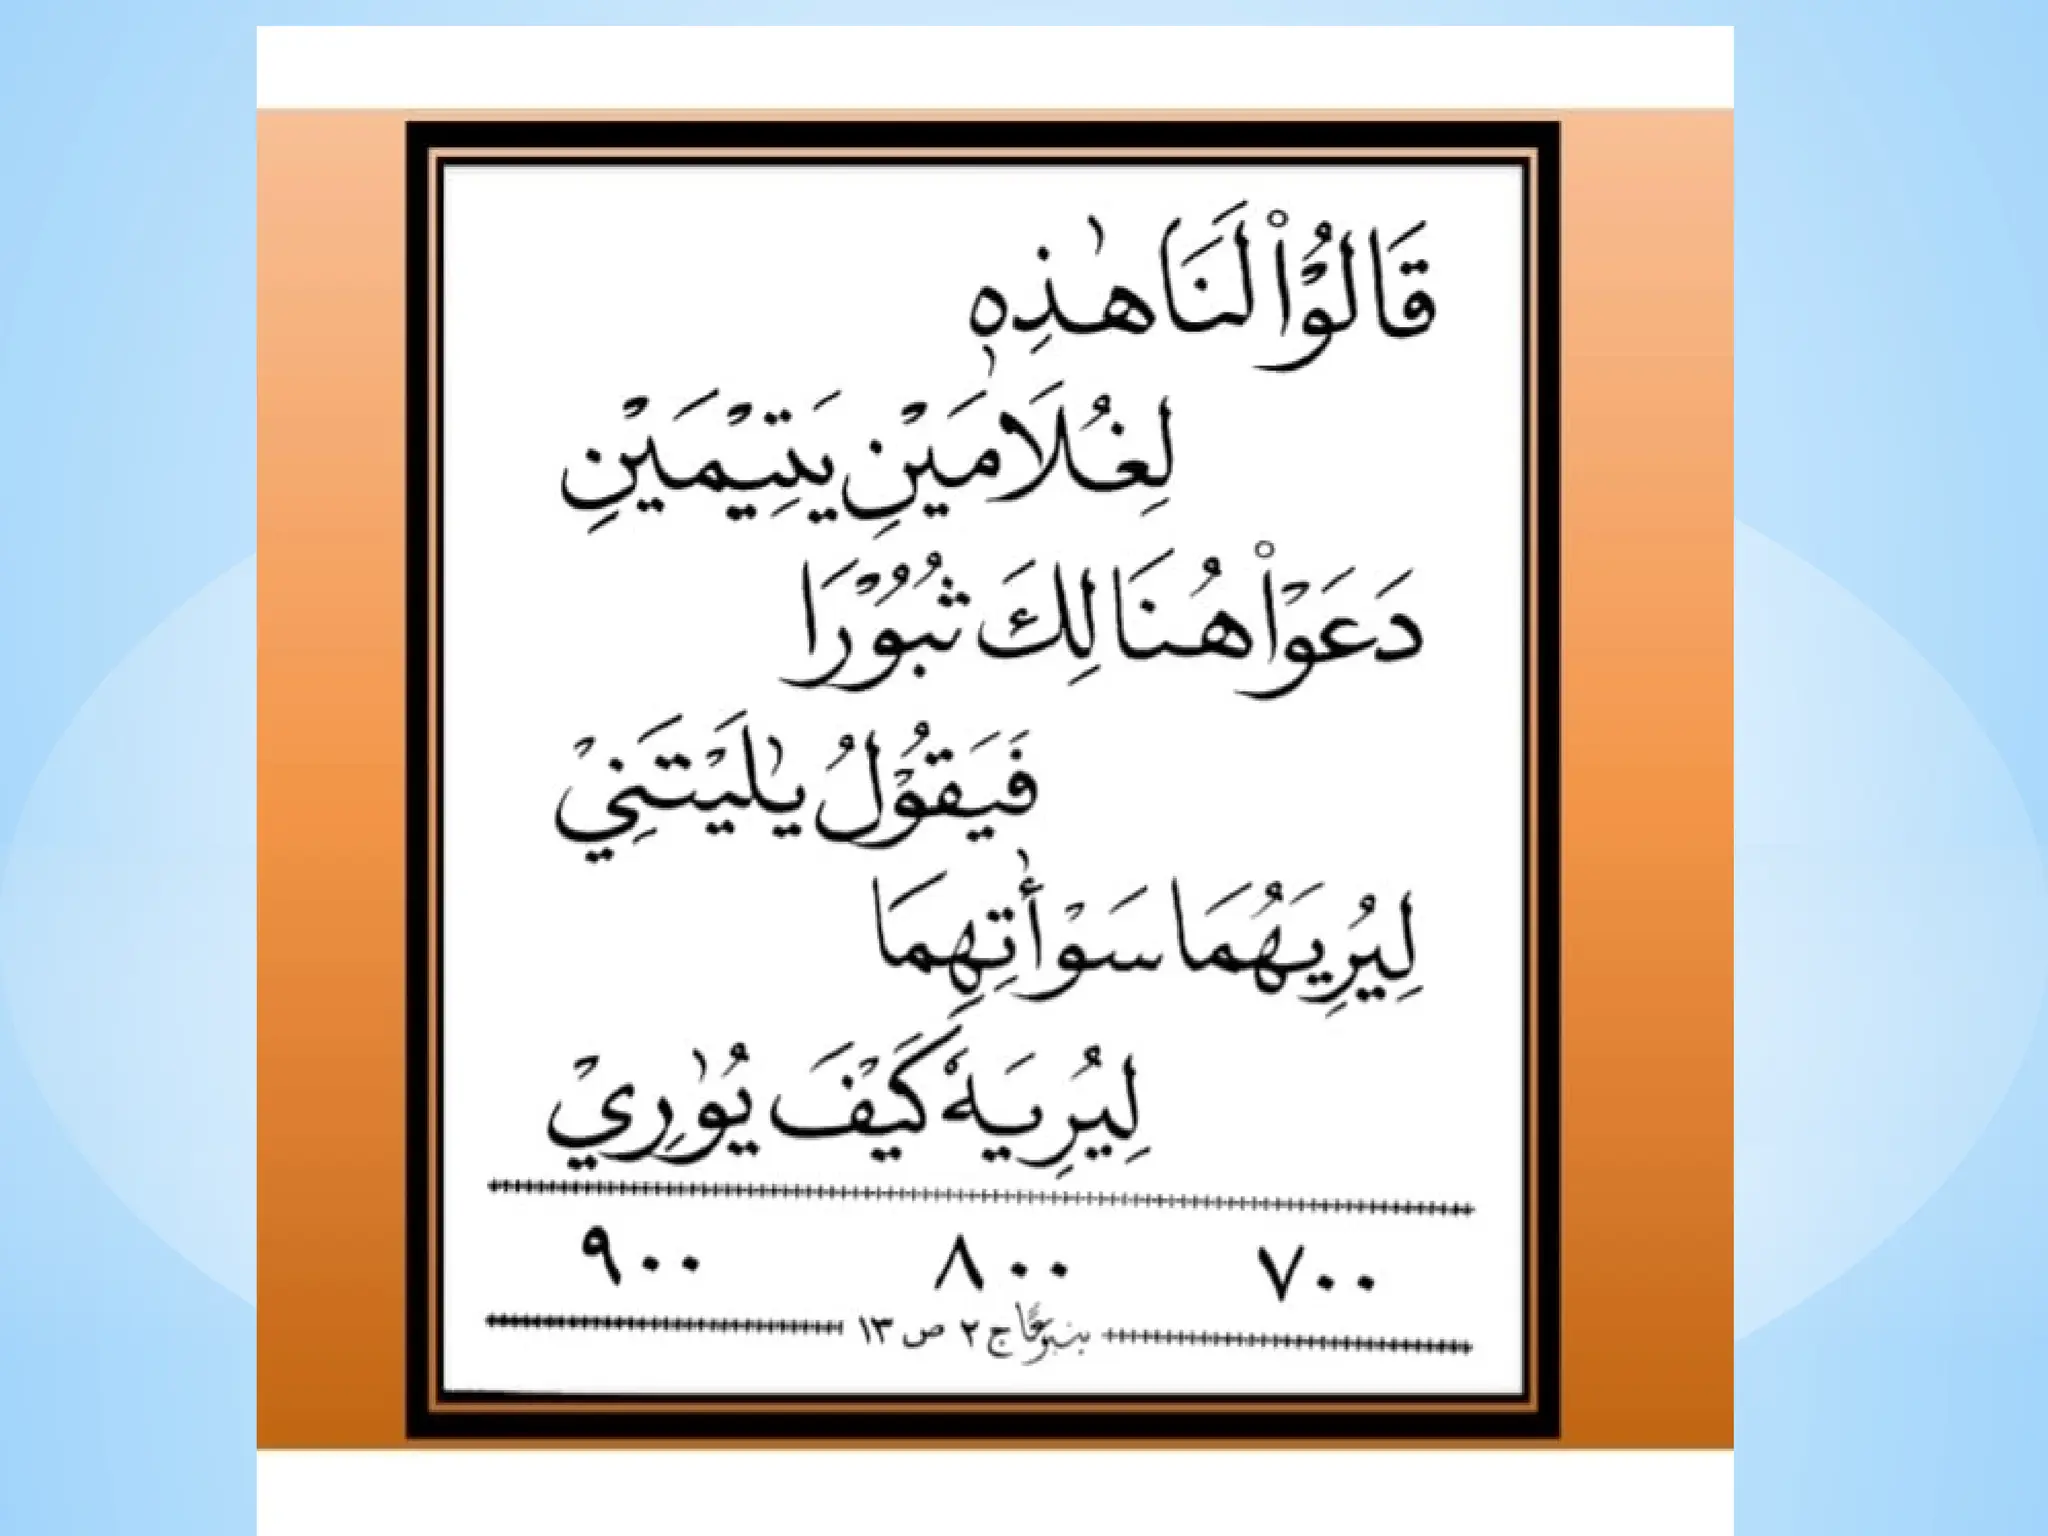 قَالُوْا۟ لَنَا هٰذِهٖ
لِغُلَامَيْنِ يَتِيْمَيْنِ
دَعَوْا۟ هُنَالِكَ ثُبُوْرًا
فَيَقُوْلُ يٰلَيْتَنِيْ
لِيُرِيَهُمَا سَوْأٰتِهِمَا
لِيُرِيَهٗ كَيْفَ يُوٰرِيْ
٧٠٠ ٨٠٠ ٩٠٠
ج ٢ ص ١٣